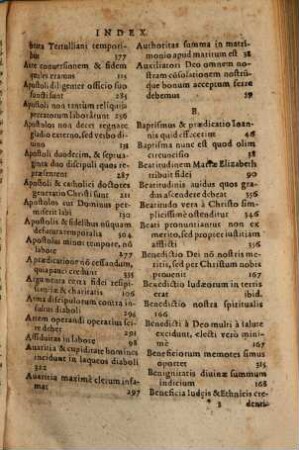 INDEX
bitra Tertulliani tempori-
bus 177
Ante conversionem & fidem
quales eramus 115
Apostoli diligenter officio suo
functi sunt 285
Apostoli non tantùm reliquis
præceterorum laborârunt 250
Apostolos non decet regnare
gladio externo, sed verbo di
uino 131
Apostoli duodecim, & septua-
ginta duo discipuli quos re-
præsentent 287
Apostoli & catholici doctores
generatio Christi 229
Apostolos cur Dominus per-
miserit labi 130
Apostolis & fidelibus nusquam
defutura temporalia 304
Apostolus minoi tempore, nó
labore
A prædicatione nó cessandum,
quia pauci credunt
Argumenta certa fidei resipi-
scentiæ & charitatis
Arma discipulorum contra in
sultus diaboli 322
Artem operandi operarius sci-
re debet 296
Assiduitas in labore 98
Auaritia & cupiditate homines
incidunt in laqueos diaboli
322
Auaritia maximè clerum infa-
mat 297
Authoritas summa in matri-
monio apud maritum est 28
Auxiliatori Deo omnem no-
stram cósolationem nostrúm-
que bonum acceptum serre
debemus 29
B.
Baptismus & prædicatio Ioan-
nis quid effecerim 46
Baptisma nunc est quod olim
circuncisio 18
Beatitudinem Mariæ Elizabeth
tribuit fidei 90
Beatitudinis auidus quos gra-
dus ascendere debeat 336
Beatitudo vera à Christo sim-
plicissimè ostenditur 336
Beati pronuntiantur non ex
merito, sed propter iustitiam
afflicti 336
Benedictio Dei nó nostris me-
ritis, sed per Christum nobis
prouenit 167
Benedictio Iudæorum in terris
erat ibid.
Benedictio nostra spiritualis
166
Benedicti à Deo multi à salute
excidunt, electi verò mini-
mè 167
Beneficiorum memores simus
oportet 315
Benignitatis diuinæ summum
indicium 168
Beneficia Iudæis & Ethnicis cre-
3 denti-